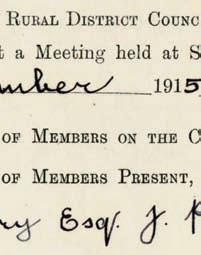 RURAL DISTRICT COUNC
t a Meeting held at S
mber 1915
OF MEMBERS ON THE C
OF MEMBERS PRESENT,
ry Esqr. J.